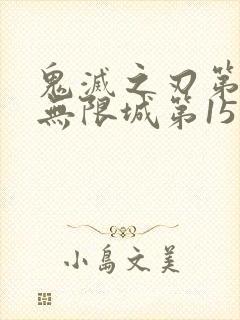 鬼滅之刃第
無限城第15
小島文美